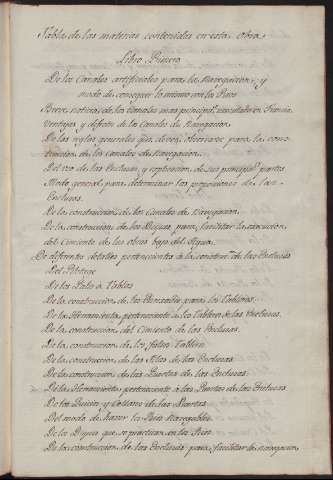 Tabla de las materias contenidas en esta obra
Libro Primero
De los Canales artificiales para la Navegacion, y
modo de conseguir lo mismo con los Rios
Breve noticia de los Canales mas principal.s executados en Francia
Ventajas y defectos de los Canales de Navegacion
De las reglas generales que deven observarse para la cons-
truccion de los Canales de Navegacion.
Del uso de las Esclusas, y explicacion de sus principal.s partes
Modo general para determinar las proporciones de las
Esclusas.
De la construccion de los Canales de Navegacion
De la construccion de los Diques para facilitar la execucion
del Cimiento de las obras bajo del Agua.
De diferentes detalles pertenecientes à la construc.n de las Esclusas
Del Pilotaje
De los Palo à Tablas
De la construccion de los para los Tableros.
De la Herramienta perteneciente à los Tableros de las Esclusas.
De la construccion del Cimiento de las Esclusas.
De la construccion de los falsos Tableros
De la construccion de los de las Esclusas
De la construccion de las Puertas de las Esclusas.
De la Herramienta perteneciente à las Puertas de las Esclusas
De los Quicios y Collares de las Puertas
Del modo de hacer los Rios Navegables
De los Diques que se practican en los Rios
De la construccion de las Esclusas para facilitar la navegacion